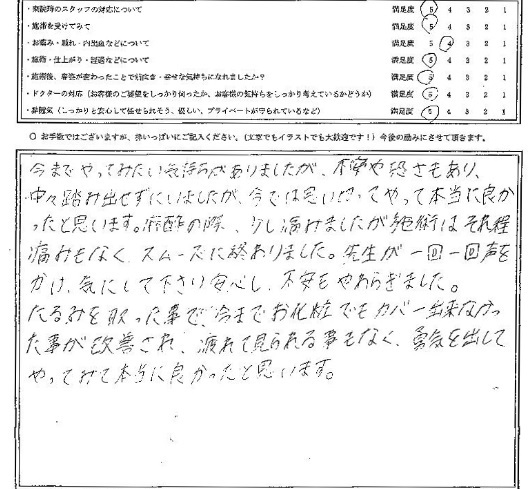 ・来院時のスタッフの対応について 満足度 5 4 3 2 1
・施術を受けてみて 満足度 5 4 3 2 1
・お痛み・腫れ・内出血などについて 満足度 5 4 3 2 1
・施術・仕上がり・経過などについて 満足度 5 4 3 2 1
・施術後、容姿が変わったことで前向き・幸せな気持ちになれましたか? 満足度 5 4 3 2 1
・ドクターの対応(お客様のご要望をしっかり伺ったか、お客様の気持ちをしっかり考えているかどうか) 満足度 5 4 3 2 1
・雰囲気(しっかりと安心して任せられそう、優しい、プライベートが守られているなど) 満足度 5 4 3 2 1
○ お手数ではございますが、枠いっぱいにご記入ください。(文章でもイラストでも大歓迎です!)今後の励みにさせて頂きます。
今までやってみたい気持ちがありましたが、不安や恐さもあり、
中々踏み出せずにいましたが、今では思い切ってやって本当に良か
ったと思います。麻酔の際、少し痛みましたが施術はそれ程
痛みもなく、スムーズに終わりました。先生が一回一回声を
かけ、気にして下さり安心し、不安もやわらぎました。
たるみを取った事で、今までお化粧でもカバー出来なかっ
た事が改善され、疲れて見られる事もなく、勇気を出して
やってみて本当に良かったと思います。